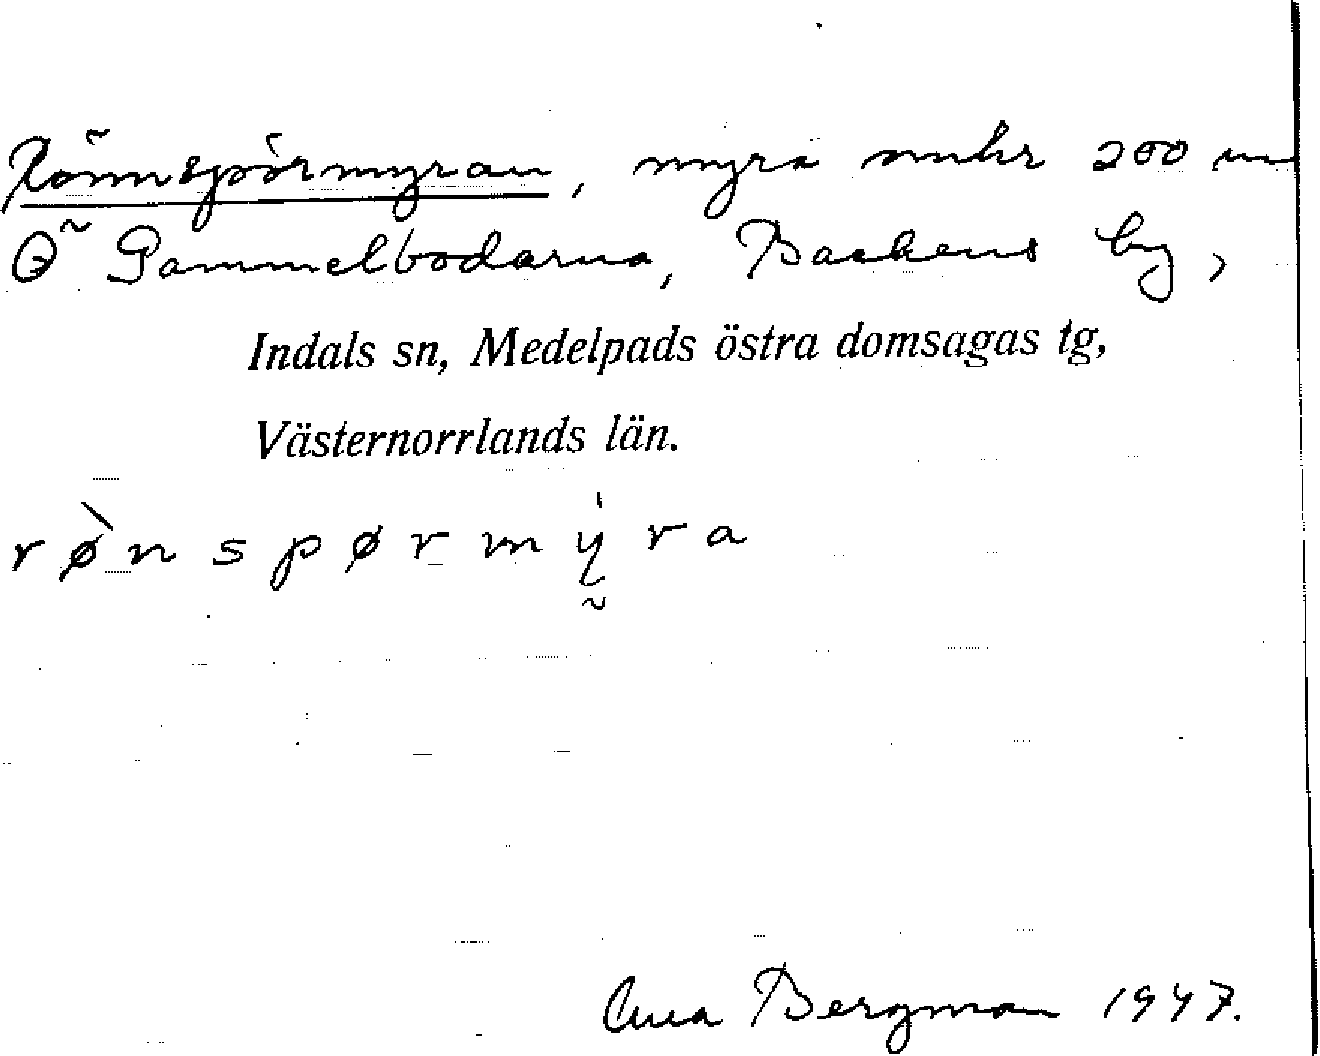 Rönnspörrmyran, myra omkr 200 m
Ö Gammelbodarna, Backens by,
Indals sn, Medelpads östra domsagas tg,
Västernorrlands län.
rø̀nspørmy̰̍ra
Bergman 1947.